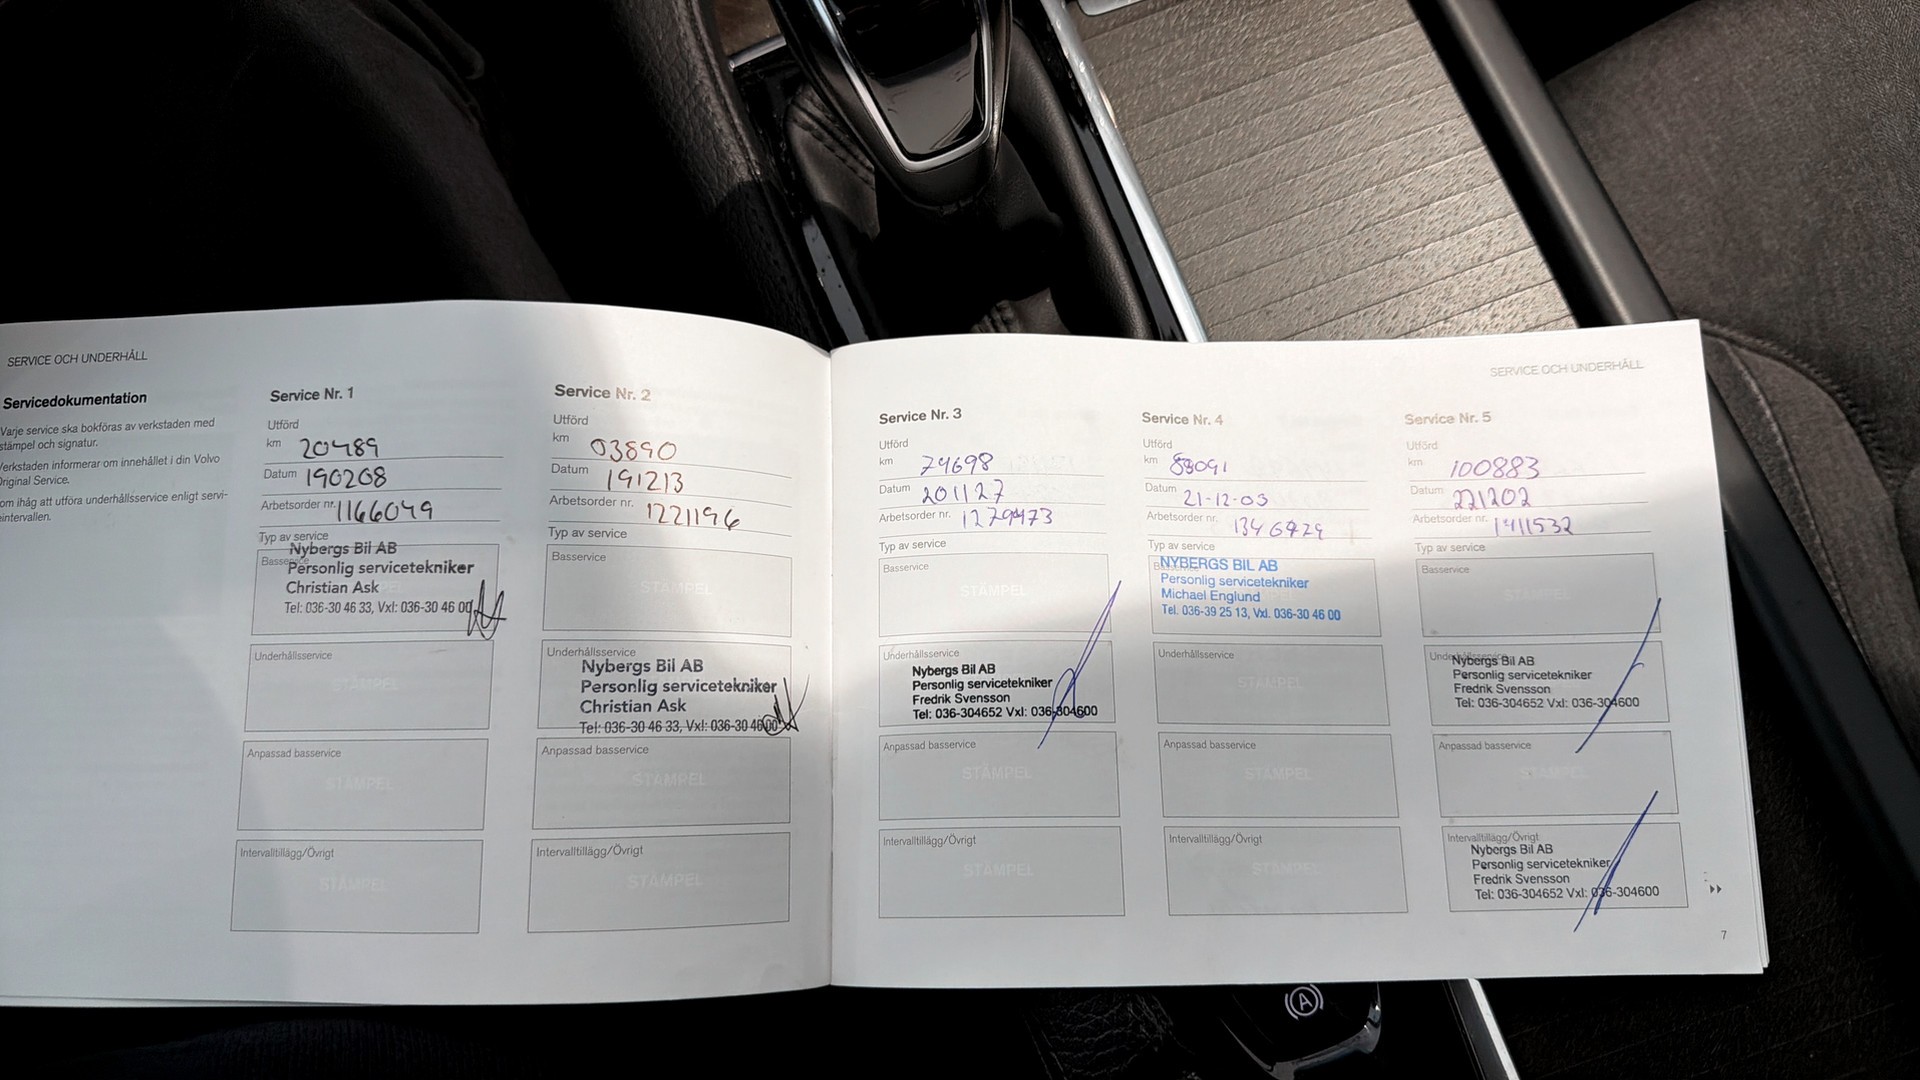 SERVICE OCH UNDERHÅLL
Servicedokumentation
Varje service ska bokföras av verkstaden med
stämpel och signatur.
Verkstaden informerar om innehållet i din Volvo
Original Service.
om ihåg att utföra underhållsservice enligt servi-
eintervallen.
Service Nr. 1
Utförd
km 20489
Datum 190208
Arbetsorder nr. 1166049
Typ av service
Basservice
Nybergs Bil AB
Personlig servicetekniker
Christian Ask
Tel: 036-30 46 33, Vxl: 036-30 46 00
Underhållsservice
STÄMPEL
Anpassad basservice
STÄMPEL
Intervalltillägg/Övrigt
STÄMPEL
Service Nr. 2
Utförd
km 03890
Datum 191213
Arbetsorder nr. 1221196
Typ av service
Basservice
STÄMPEL
Underhållsservice
Nybergs Bil AB
Personlig servicetekniker
Christian Ask
Tel: 036-30 46 33, Vxl: 036-30 46 00
Anpassad basservice
STÄMPEL
Intervalltillägg/Övrigt
STÄMPEL
SERVICE OCH UNDERHÅLL
Service Nr. 3
Utförd
km 74698
Datum 201127
Arbetsorder nr. 1279473
Typ av service
Basservice
STÄMPEL
Underhållsservice
Nybergs Bil AB
Personlig servicetekniker
Fredrik Svensson
Tel: 036-304652 Vxl: 036-304600
Anpassad basservice
STÄMPEL
Intervalltillägg/Övrigt
STÄMPEL
Service Nr. 4
Utförd
km
Datum 21-12-03
Arbetsorder nr.
Typ av service
NYBERGS BIL AB
Personlig servicetekniker
Michael Englund
Tel. 036-39 25 13, Vxl. 036-30 46 00
Underhållsservice
STÄMPEL
Anpassad basservice
STÄMPEL
Intervalltillägg/Övrigt
STÄMPEL
Service Nr. 5
Utförd
km 100883
Datum 221202
Arbetsorder nr. 1411532
Typ av service
Basservice
STÄMPEL
Underhållsservice
Nybergs Bil AB
Personlig servicetekniker
Fredrik Svensson
Tel: 036-304652 Vxl: 036-304600
Anpassad basservice
STÄMPEL
Intervalltillägg/Övrigt
Nybergs Bil AB
Personlig servicetekniker
Fredrik Svensson
Tel: 036-304652 Vxl: 036-304600
7
A